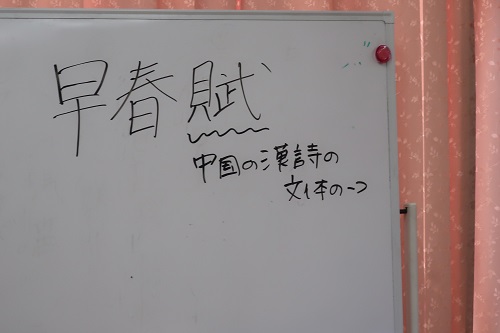 早春賦
中国の漢詩の
文体の一つ